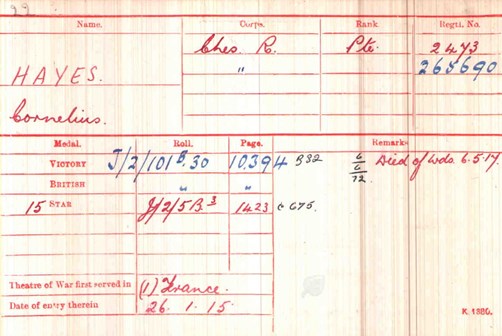 Name. Corps. Rank Regtl. No.
HAYES. Ches. R. Pte. 2473
" 265690
Cornelius.
Medal. Roll. Page. Remarks
VICTORY J/2/101B.30 10394 B32 Died of Wds. 6.5.17.
BRITISH " "
15 STAR J/2/5B.3 1423 C675.
Theatre of War first served in (1) France.
Date of entry therein 26.1.15.
K. 1380.